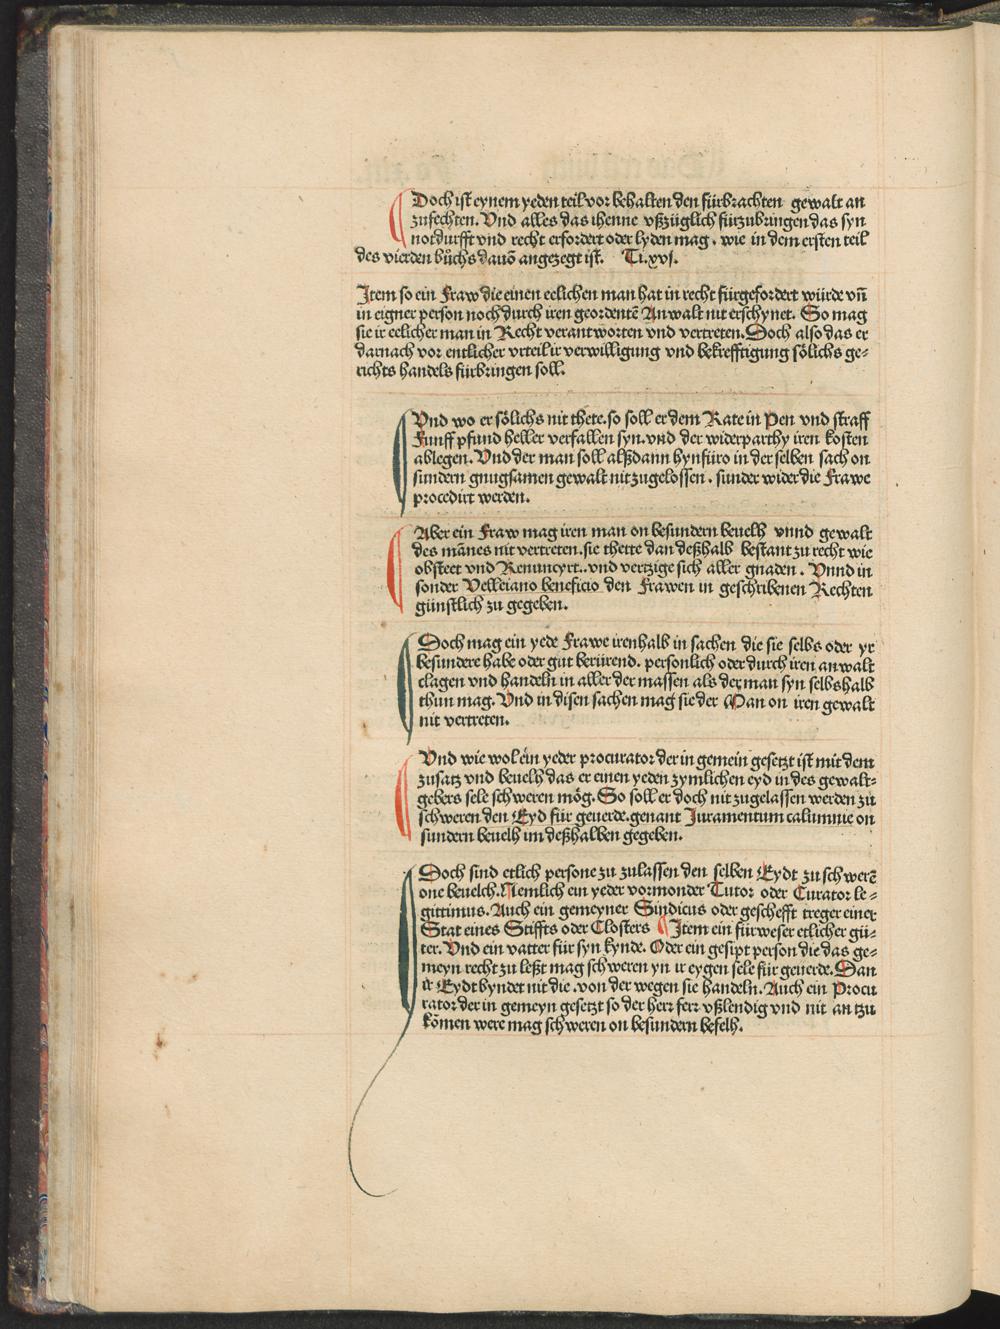 Doch ist eynem yeden teil vor behalten den fürbrachten gewalt an
zufechten. Vnd alles das ihenne vßzüglich fürzubringen das syn
notdurfft vnd recht erfordert oder lyden mag. wie in dem ersten teil
des vierden bůchs dauõ angezegt ist. Ti.xvj.
Item so ein Fraw die einen eelichen man hat in recht fürgefordert würde vñ
in eigner person noch durch iren geordentẽ Anwalt nit erschynet. So mag
sie ir eelicher man in Recht verantworten vnd vertreten. Doch also das er
darnach vor entlicher vrteil ir verwilligung vnd bekrefftigung sölichs ge-
richts handels fürbringen soll.
Vnd wo er sölichs nit thete. so soll er dem Rate in Pen vnd straff
Funff pfund heller verfallen syn. vnd der widerparthy iren kosten
ablegen. Vnd der man soll alßdann hynfüro in der selben sach on
sundern gnugsamen gewalt nit zugelossen. sunder wider die Frawe
procedirt werden.
Aber ein Fraw mag iren man on besundern beuelh vnnd gewalt
des mãnes nit vertreten. sie thette dan deßhalb bestant zu recht wie
obsteet vnd Renuncyrt.. vnd vertzige sich aller gnaden. Vnnd in
sonder Velleiano beneficio den Frawen in geschribenen Rechten
günstlich zu gegeben.
Doch mag ein yede Frawe irenhalb in sachen die sie selbs oder yr
besundere habe oder gut berürend. personlich oder durch iren anwalt
clagen vnd handeln in aller der massen als der man syn selbshalb
thun mag. Vnd in disen sachen mag sie der Man on iren gewalt
nit vertreten.
Vnd wie wol ein yeder procurator der in gemein gesetzt ist mit dem
zusatz vnd beuelh das er einen yeden zymlichen eyd in des gewalt-
gebers sele schweren mög. So soll er doch nit zugelassen werden zu
schweren den Eyd für geuerde. genant Juramentum calumnie on
sundern beuelh im deßhalben gegeben.
Doch sind etlich persone zu zulassen den selben Eydt zu schwerẽ
one beuelch. Nemlich ein yeder vormonder Tutor oder Curator le-
gittimus. Auch ein gemeyner Sindicus oder geschefft treger einer
Stat eines Stiffts oder Closters ¶ Item ein fürweser etlicher gü-
ter. Vnd ein vatter für syn kynde. Oder ein gesipt person die das ge-
meyn recht zu leßt mag schweren yn ir eygen sele für geuerde. Dan
ir Eydt byndet nit die. von der wegen sie handeln. Auch ein Procu
rator der in gemeyn gesetzt so der herr ferr vßlendig vnd nit an tzu
kõmen were mag schweren on besundern befelh.